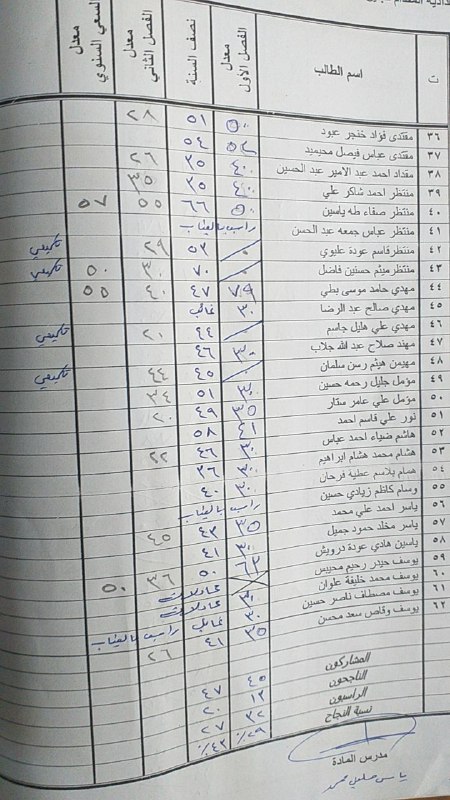 ت اسم الطالب معدل الفصل الأول نصف السنة معدل الفصل الثاني معدل السعي السنوي
٣٦ مقتدى فؤاد خنجر عبود ٥٠ ٥١ ٢٨
٣٧ مقتدى عباس فيصل محيميد ٥٢ ٥٤
٣٨ مقداد احمد عبد الامير عبد الحسين ٤٠ ٣٥ ٢٦
٣٩ منتظر احمد شاكر علي ٤٠ ٣٥ ٣٥
٤٠ منتظر صفاء طه ياسين ٥٠ ٦٦ ٥٥ ٥٧
٤١ منتظر عباس جمعه عبد الحسن راسب بالغياب
٤٢ منتظر قاسم عودة عليوي ٥٣ ٢٩ تكميلي
٤٣ منتظر ميثم حسنين فاضل ٧٠ ٣٠ ٥٠ تكميلي
٤٤ مهدي حامد موسى بطي ٧٩ ٤٧ ٤٠ ٥٥
٤٥ مهدي صالح عبد الرضا ٣٠ غائب
٤٦ مهدي علي هليل جاسم ٤٤ ٢٠ تكميلي
٤٧ مهند صلاح عبد الله جلاب ٣٠ ٤٦
٤٨ مهيمن هيثم رسن سلمان ٤٥ ٤٤ تكميلي
٤٩ مؤمل جليل رحمه حسين ٣٠ ٥١ ٣٤
٥٠ مؤمل علي عامر ستار ٣٥ ٤٩ ٢٠
٥١ نور علي قاسم احمد ٤١ ٥٨
٥٢ هاشم ضياء احمد عباس ٣٠ ٤٦ ٢٢
٥٣ هشام محمد هشام ابراهيم ٣٠ ٣٦
٥٤ همام بلاسم عطية فرحان ٣٠ ٤٠
٥٥ وسام كاظم زيادي حسين راسب بالغياب
٥٦ ياسر احمد علي محمد ٣٥ ٤٣ ٤٥
٥٧ ياسر مخلد حمود جميل ٣٠ ٤١
٥٨ ياسين هادي عودة درويش ٦٣ ٥٠ ٣٦ ٥٠
٥٩ يوسف حيدر رحيم محيبس
٦٠ يوسف محمد خليفة علوان ٣٠
٦١ يوسف مصطاف ناصر حسين ٣٠ غائب راسب بالغياب
٦٢ يوسف وقاص سعد محسن ٣٥ ٤١ ٢٦
المشاركون ٤٥ ٤٧
الناجحون ١٣ ٢٠
الراسبون ٣٢ ٢٧
نسبة النجاح ٢٩٪ ٤٣٪
مدرس المادة